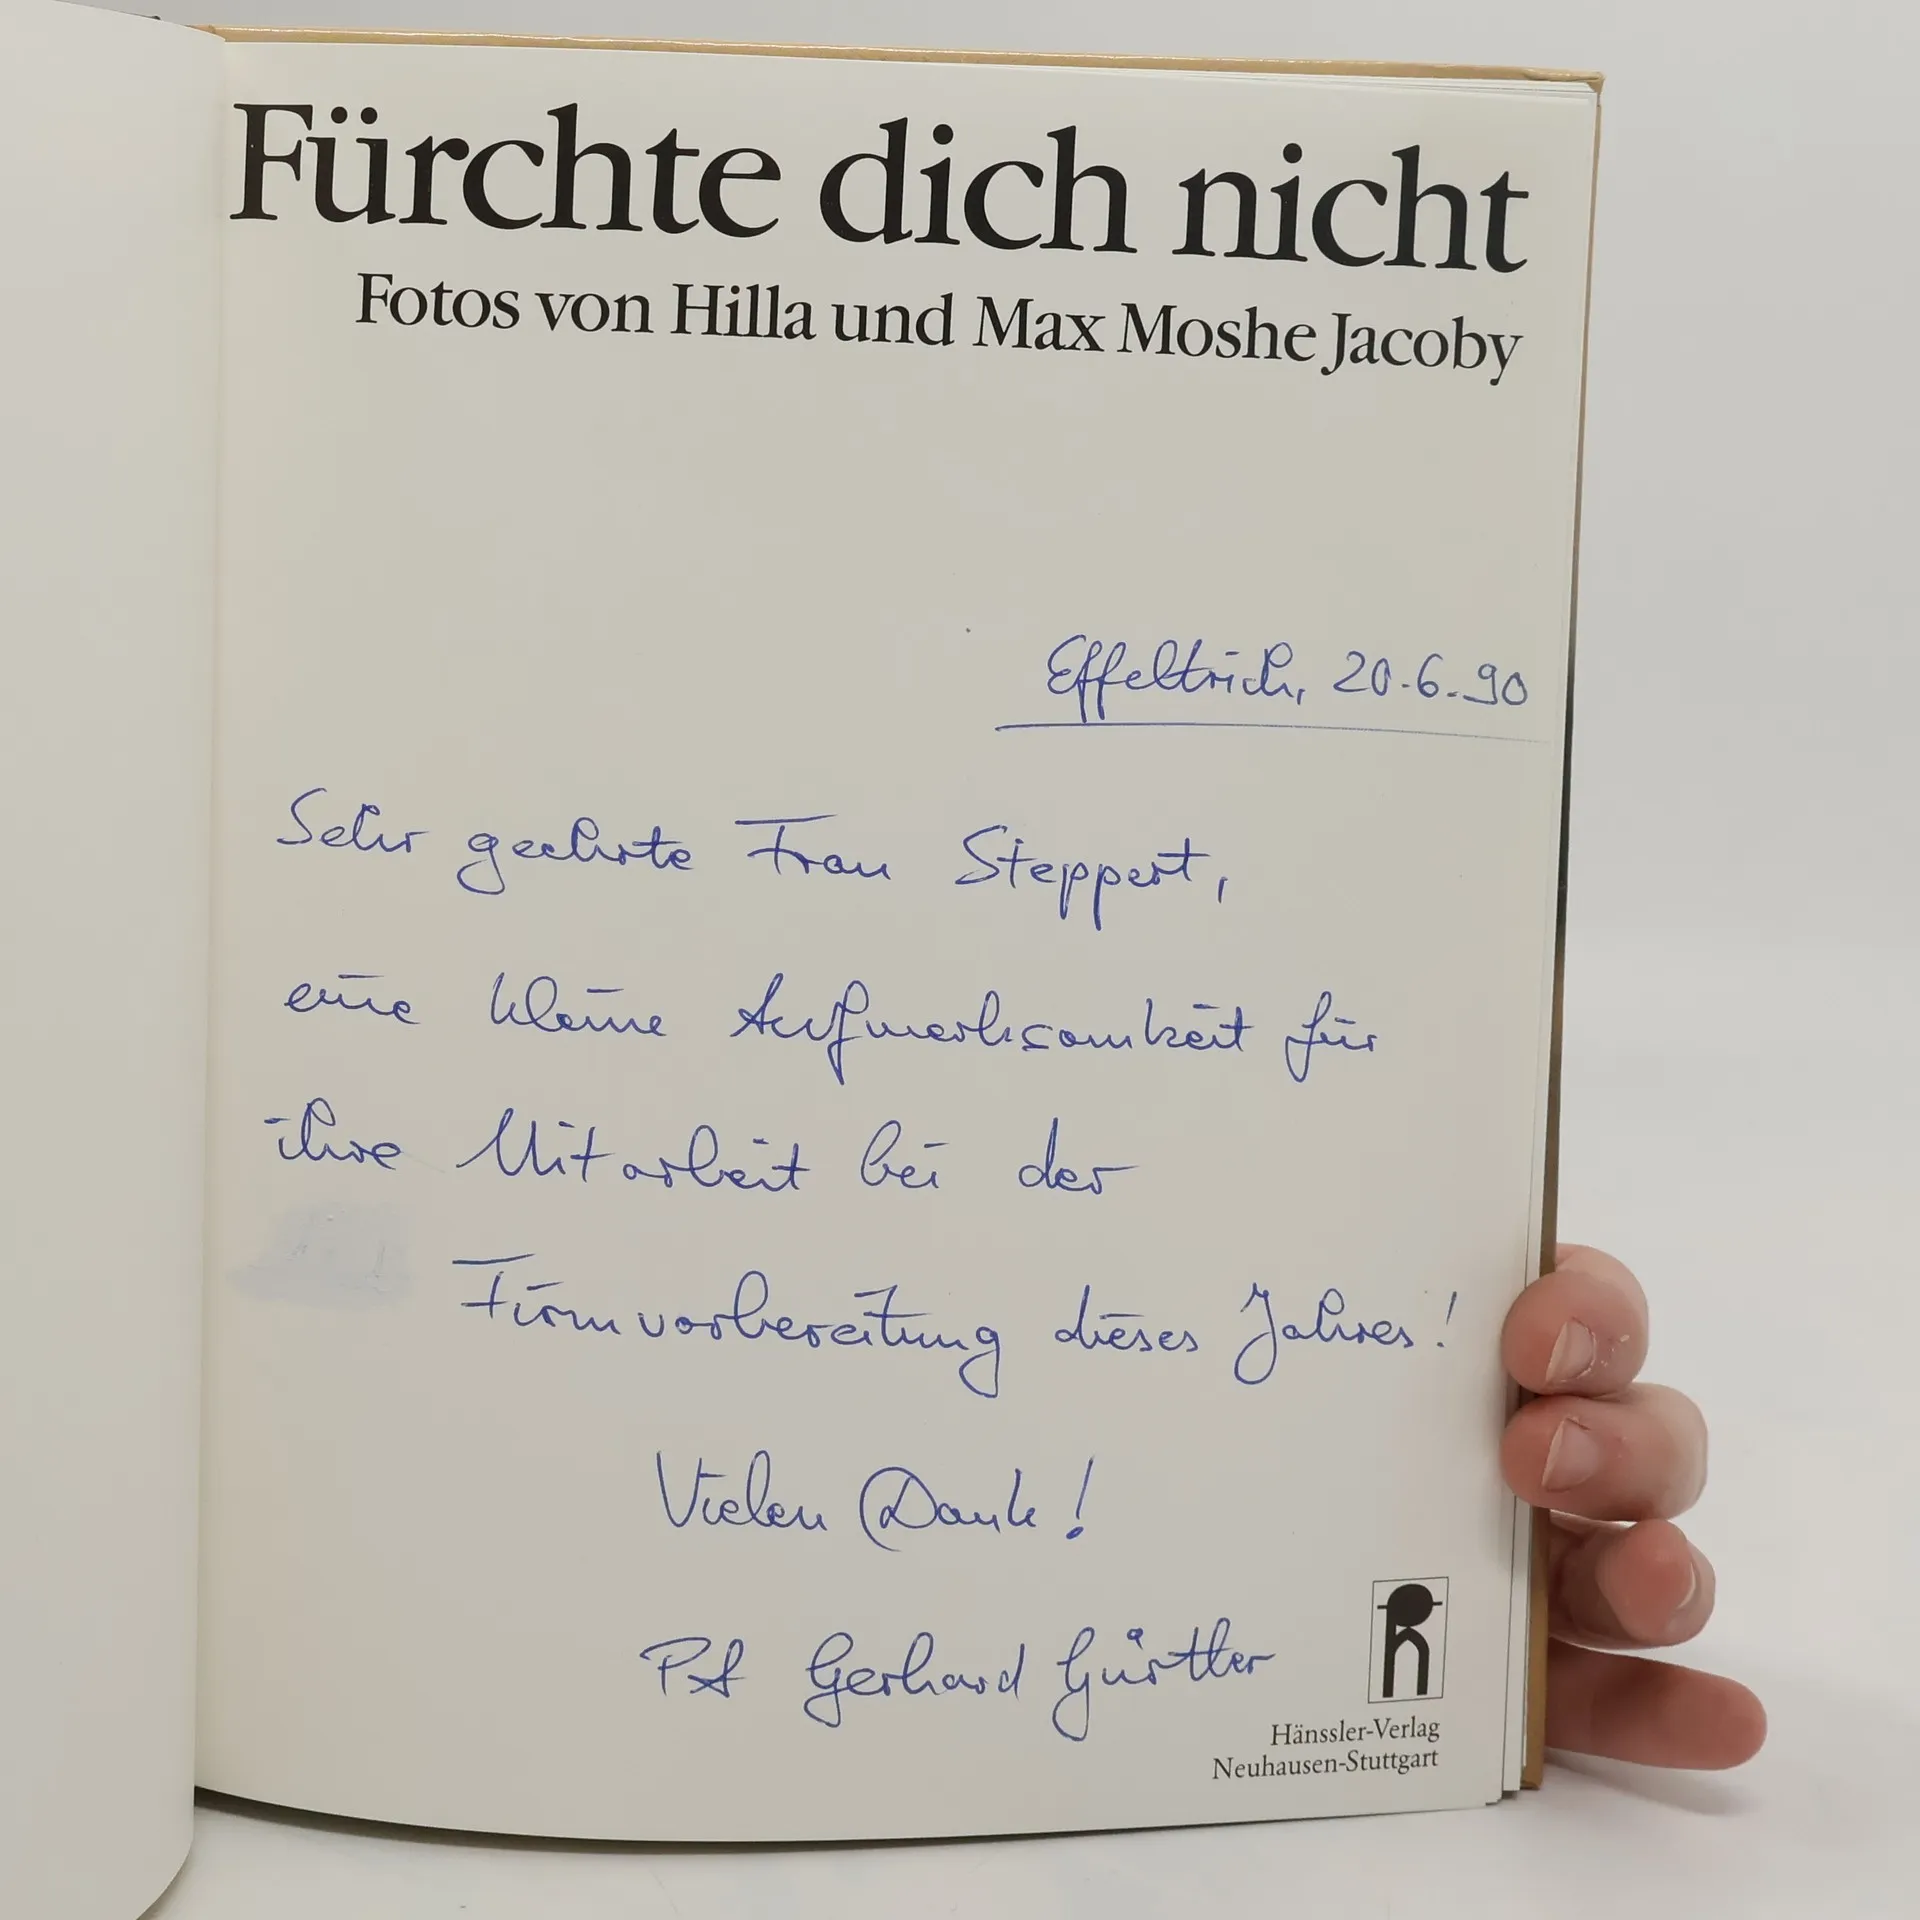 Fürchte dich nicht
Fotos von Hilla und Max Moshe Jacoby
Effeltrich, 20.6.90
Sehr geehrte Frau Steppert,
eine kleine Aufmerksamkeit für
ihre Mitarbeit bei der
Firmvorbereitung dieses Jahres!
Vielen Dank!
Pf Gerhard Gürtler
Hänssler-Verlag
Neuhausen-Stuttgart